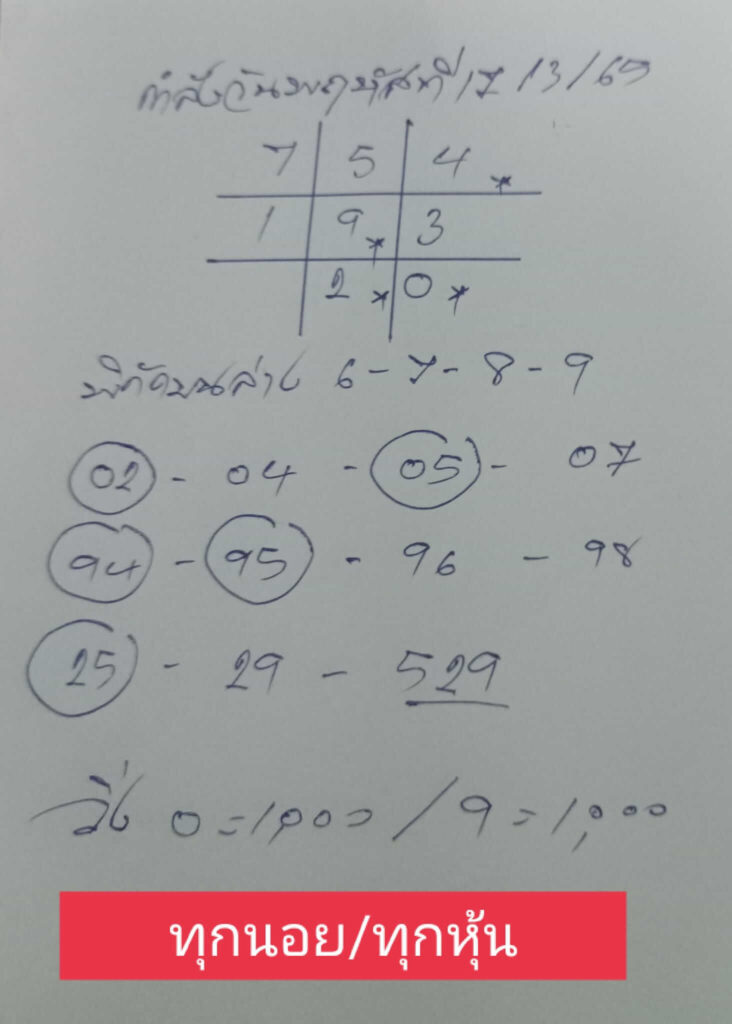 กำลังวันพฤหัสที่ 17/3/65
7 5 4 *
1 9 * 3
2 * 0 *
พิกัดบนล่าง 6-7-8-9
02 - 04 - 05 - 07
94 - 95 - 96 - 98
25 - 29 - 529
วิ่ง 0=1,000 / 9=1,000
ทุกนอย/ทุกหุ้น